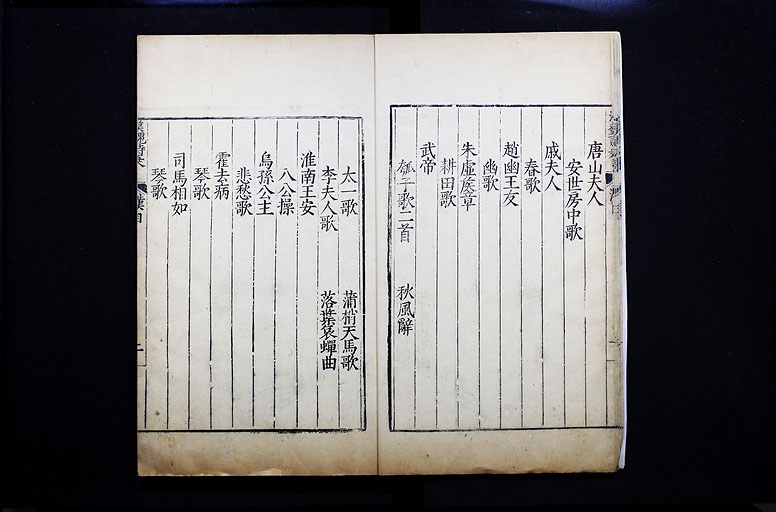 唐山夫人
安世房中歌
戚夫人
舂歌
趙幽王友
幽歌
朱虛矦章
耕田歌
武帝
瓠子歌二首 秋風辭
太一歌 蒲梢天馬歌
李夫人歌 落葉哀蟬曲
淮南王安
八公操
烏孫公主
悲愁歌
霍去病
琴歌
司馬相如
琴歌
漢目
二